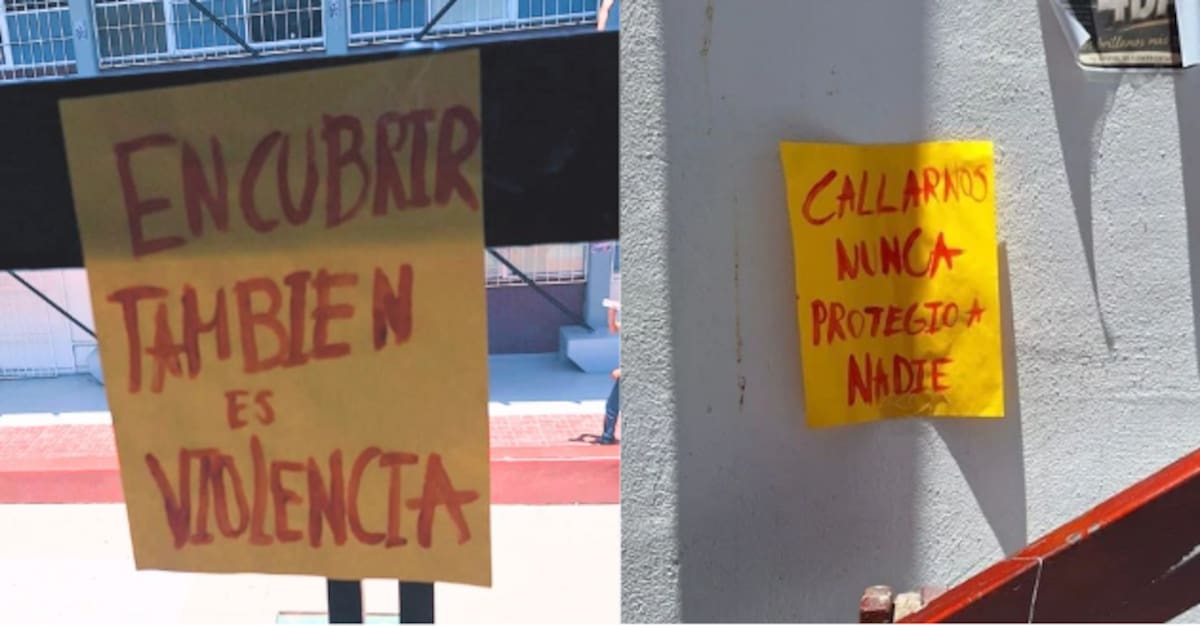 ENCUBRIR
TAMBIEN
ES
VIOLENCIA
CALLARNOS
NUNCA
PROTEGIO A
NADIE